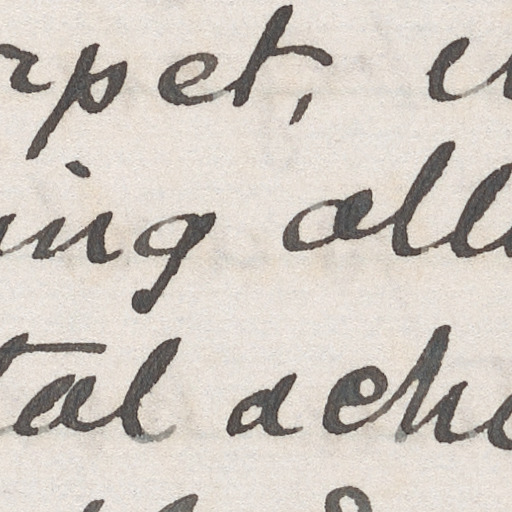 rpet,
ing all
tal ach